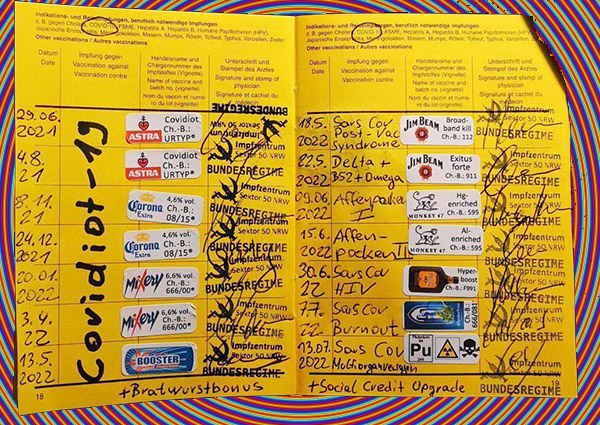 Indikations- und Reiseimpfungen, beruflich notwendige Impfungen
z. B. gegen Cholera, COVID-19, FSME, Hepatitis A, Hepatitis B, Humane Papillomviren (HPV),
Japanische Enzephalitis, Meningokokken, Masern, Mumps, Röteln, Tollwut, Typhus, Varizellen, Zoster
Other vaccinations / Autres vaccinations
Datum
Date
Impfung gegen
Vaccination against
Vaccination contre
Handelsname und
Chargennummer des
Impfstoffes (Vignette)
Name of vaccine and
batch no. (vignette)
Nom du vaccin et numéro
du lot (vignette)
Unterschrift und
Stempel des Arztes
Signature and stamp of
physician
Signature et cachet du
médecin
Covidiot-19
29.06.
2021
ASTRA
Covidiot
Ch.-B.:
URTYP*
BUNDESREGIME
Sektor 50 NRW
Impfzentrum
4.8.
21
ASTRA
Covidiot
Ch.-B.:
URTYP*
Impfzentrum
Sektor 50 NRW
BUNDESREGIME
8.11.
21
Corona
Extra
4,6% vol.
Ch.-B.:
08/15*
Impfzentrum
Sektor 50 NRW
BUNDESREGIME
24.12.
2021
Corona
Extra
4,6% vol.
Ch.-B.:
08/15*
Impfzentrum
Sektor 50 NRW
BUNDESREGIME
20.01.
2022
MiXery
6,6% vol.
Ch.-B.:
666/00*
Impfzentrum
Sektor 50 NRW
BUNDESREGIME
3.4.
22
MiXery
6,6% vol.
Ch.-B.:
666/00*
Impfzentrum
Sektor 50 NRW
BUNDESREGIME
13.5.
2022
BOOSTER
Impfzentrum
Sektor 50 NRW
BUNDESREGIME
+Bratwurstbonus
18
Indikations- und Reiseimpfungen, beruflich notwendige Impfungen
z. B. gegen Cholera, COVID-19, FSME, Hepatitis A, Hepatitis B, Humane Papillomviren (HPV),
Japanische Enzephalitis, Meningokokken, Masern, Mumps, Röteln, Tollwut, Typhus, Varizellen, Zoster
Other vaccinations / Autres vaccinations
Datum
Date
Impfung gegen
Vaccination against
Vaccination contre
Handelsname und
Chargennummer des
Impfstoffes (Vignette)
Name of vaccine and
batch no. (vignette)
Nom du vaccin et numéro
du lot (vignette)
Unterschrift und
Stempel des Arztes
Signature and stamp of
physician
Signature et cachet du
médecin
18.5.
2022
Sars Cov
Post-Vac
syndrome
JIM BEAM
Broad-
band kill
Ch.-B.: 112
Impfzentrum
Sektor 50 NRW
BUNDESREGIME
22.5.
2022
Delta +
B52 + Omega
JIM BEAM
Exitus
forte
Ch.-B.: 911
Impfzentrum
Sektor 50 NRW
BUNDESREGIME
09.06.
2022
Affenpocken
I
MONKEY 47
Hg-
enriched
Ch.-B.: 595
Impfzentrum
Sektor 50 NRW
BUNDESREGIME
15.6.
2022
Affen-
pocken II
MONKEY 47
Al-
enriched
Ch.-B.: 595
Impfzentrum
Sektor 50 NRW
BUNDESREGIME
30.6.
22
Sars Cov
HIV
Hyper-
boost
Ch.-B.: F991
Impfzentrum
Sektor 50 NRW
BUNDESREGIME
7.7.
22
Sars Cov
Burnout
Ch.-B.:
666/081*
Impfzentrum
Sektor 50 NRW
BUNDESREGIME
13.07.
2022
Sars Cov
Multiorganversagen
Pu
Impfzentrum
Sektor 50 NRW
BUNDESREGIME
+Social Credit Upgrade
19